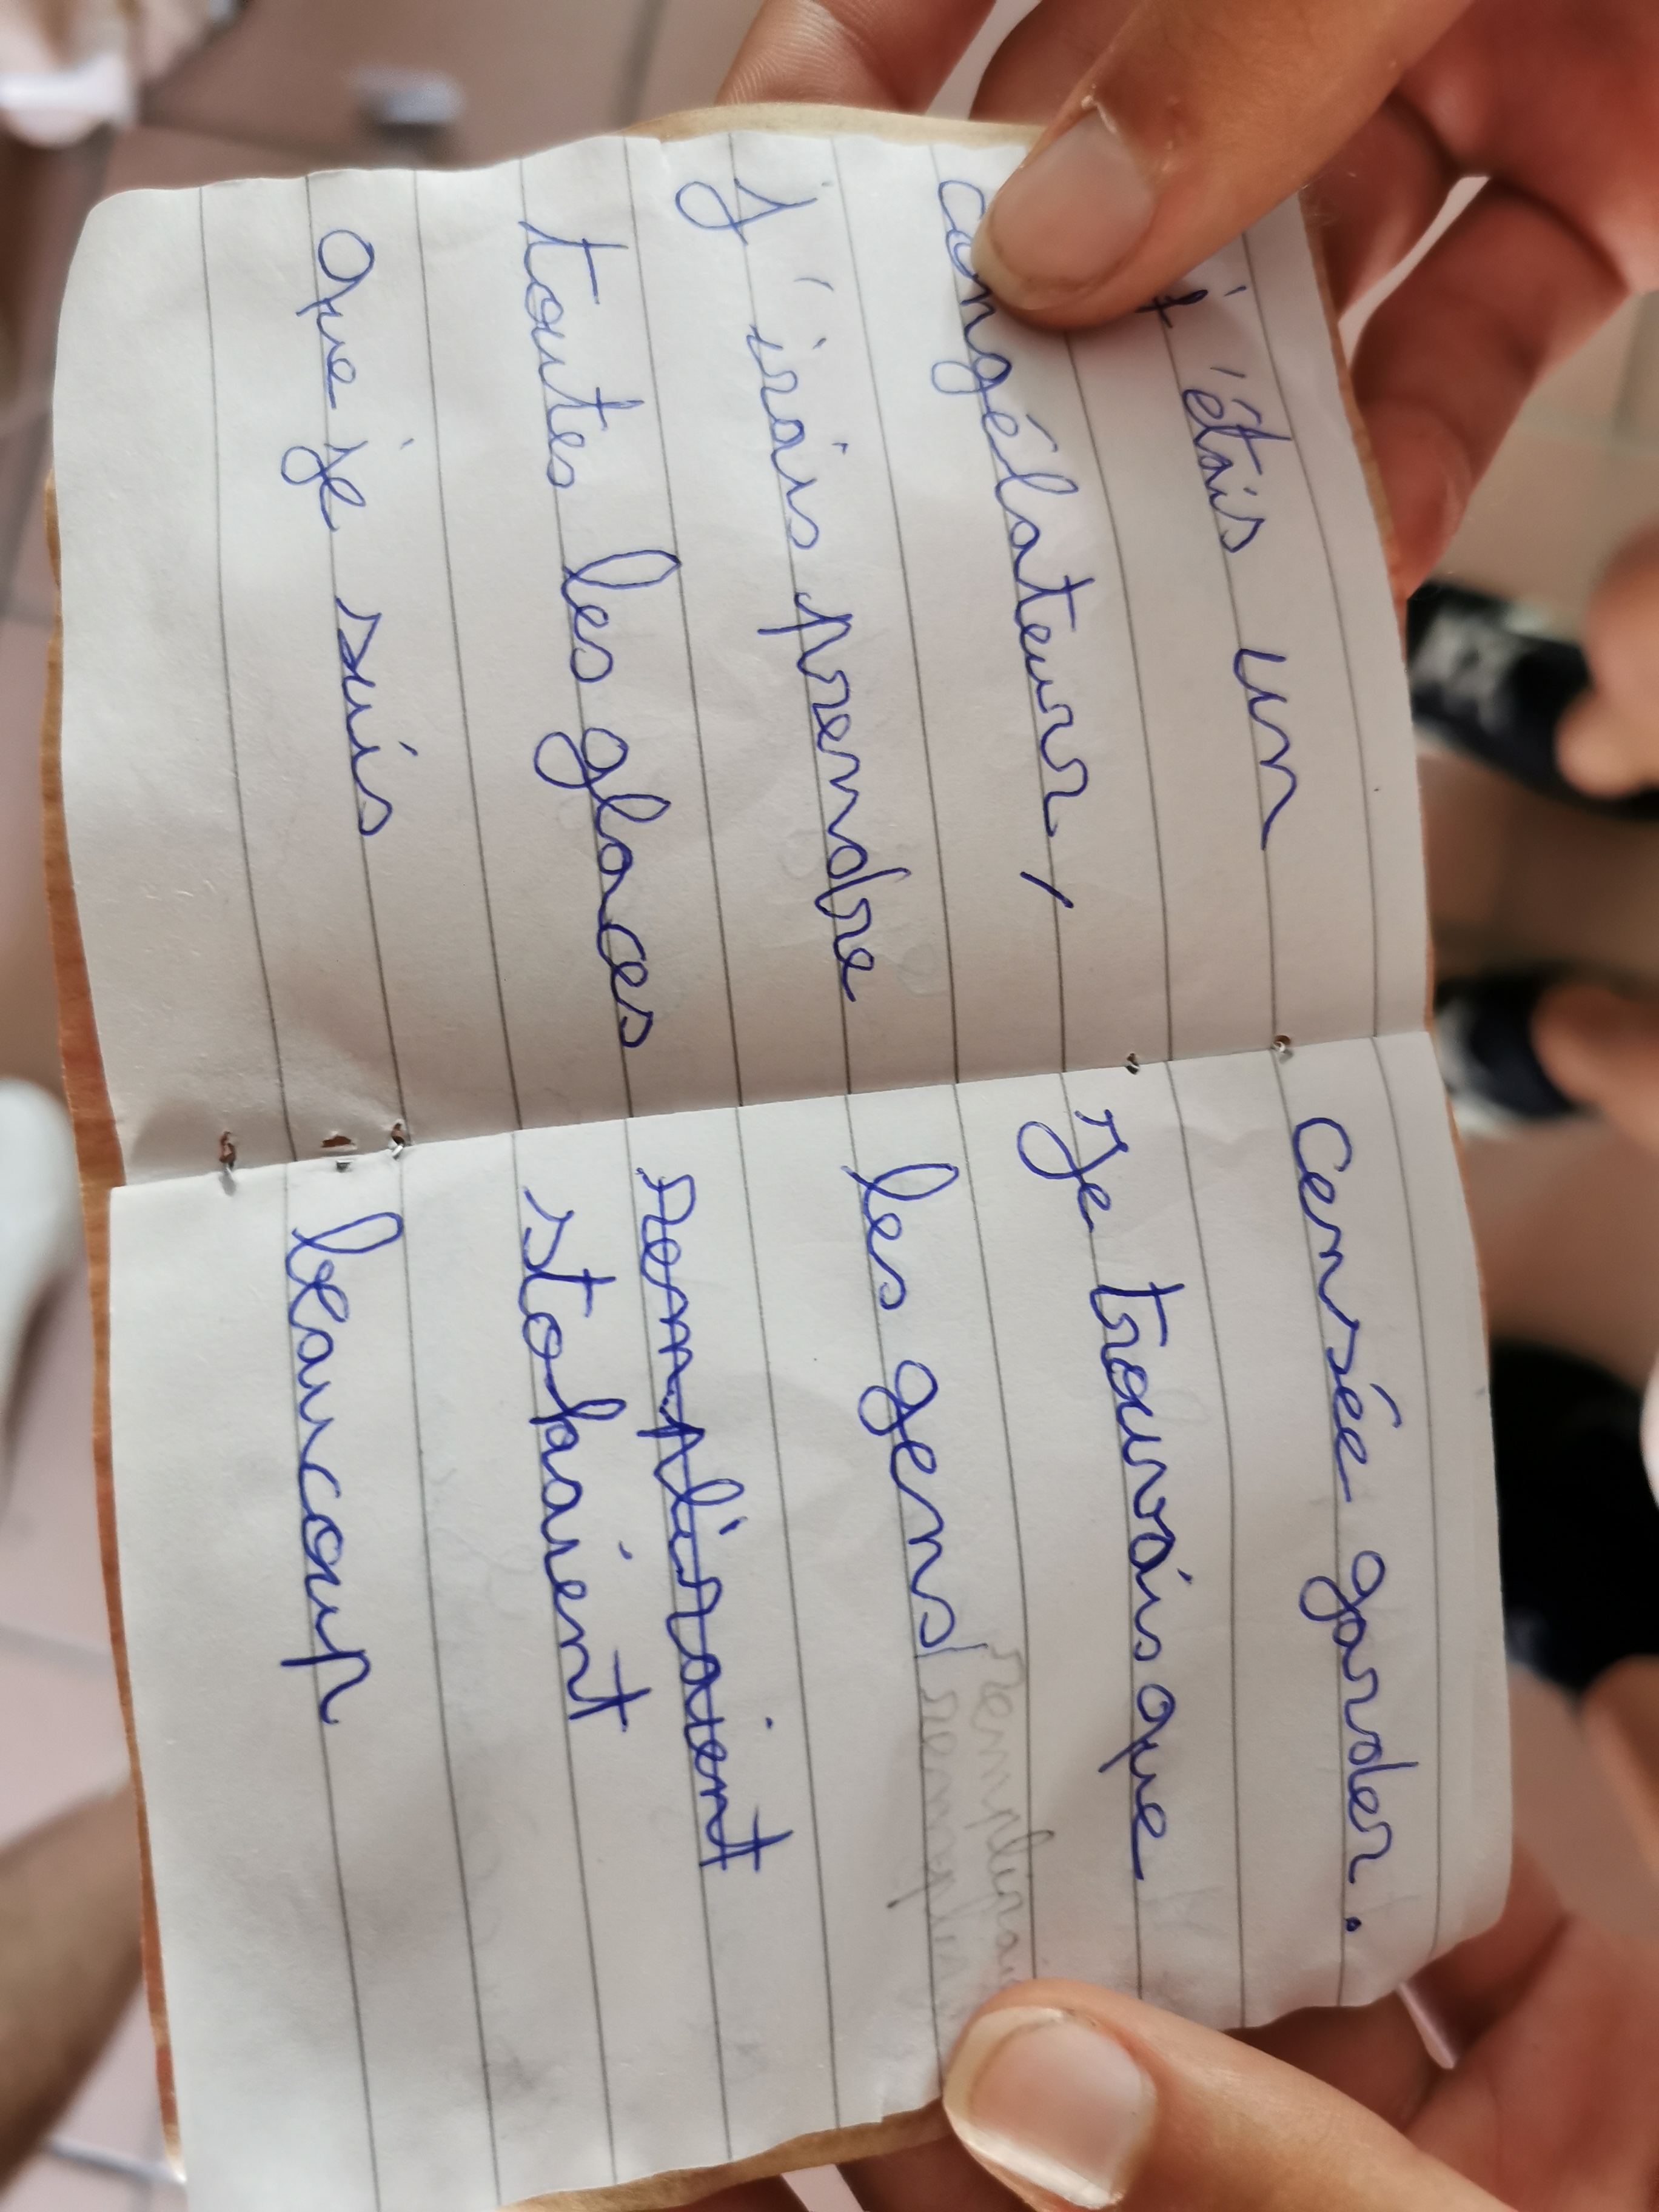 j'étais un
congélateur,
J'irais prendre
toutes les glaces
que je suis
censée garder.
Je trouvais que
les gens
rempliraient
stokaient
beaucoup